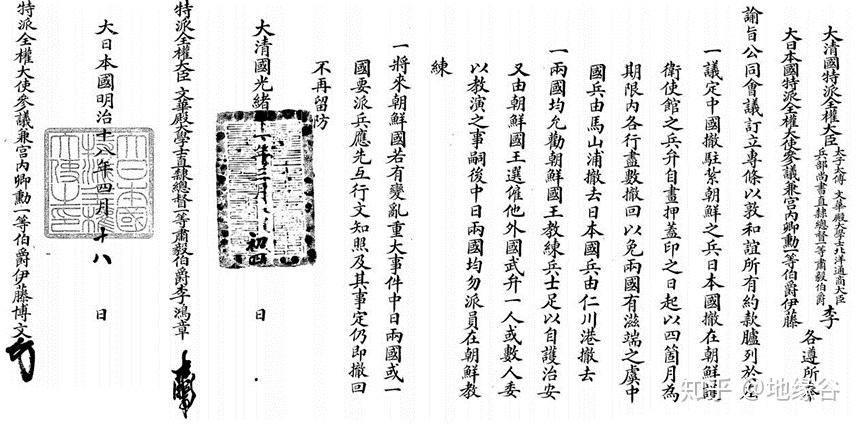 大清國特派全權大臣 太子太傅文華殿大學士北洋通商大臣
兵部尚書直隸總督一等肅毅伯爵 李
大日本國特派全權大使參議兼宮內卿勳一等伯爵伊藤
各遵所奉
諭旨公同會議訂立專條以敦和誼所有約款臚列於左
一議定中國撤駐紮朝鮮之兵日本國撤在朝鮮護
衛使館之兵弁自畫押蓋印之日起以四箇月為
期限內各行盡數撤回以免兩國有滋端之虞中
國兵由馬山浦撤去日本國兵由仁川港撤去
一兩國均允勸朝鮮國王教練兵士足以自護治安
又由朝鮮國王選僱他外國武弁一人或數人委
以教演之事嗣後中日兩國均勿派員在朝鮮教
練
一將來朝鮮國若有變亂重大事件中日兩國或一
國要派兵應先互行文知照及其事定仍即撤回
不再留防
大清國光緒十一年三月初四日
特派全權大臣文華殿大學士直隸總督一等肅毅伯爵李鴻章
大日本國明治十八年四月十八日
特派全權大使參議兼宮內卿勳一等伯爵伊藤博文
知乎 @地缘谷